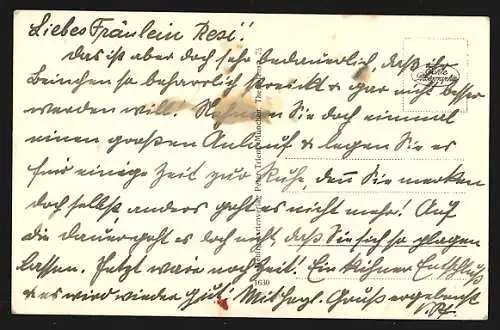 Liebes Fräulein Resi!
Das ist aber doch sehr bedauerlich, daß ihr
Beinchen so beharrlich streickt & gar nicht besser
werden will. Nehmen Sie doch einmal
einen großen Anlauf & legen Sie es
für einige Zeit zur Ruhe, denn Sie merken
doch selbst, anders geht es nicht mehr! Auf
die Dauer geht es doch nicht, daß Sie sich so plagen
lassen. Jetzt wäre noch Zeit! Ein kühner Entschluß
& es wird wieder gut! Mit herzl. Gruß ergebenst
Echte Photographie
Postkartenverlag Peter Trienes München, Theresienstr. 75
1630